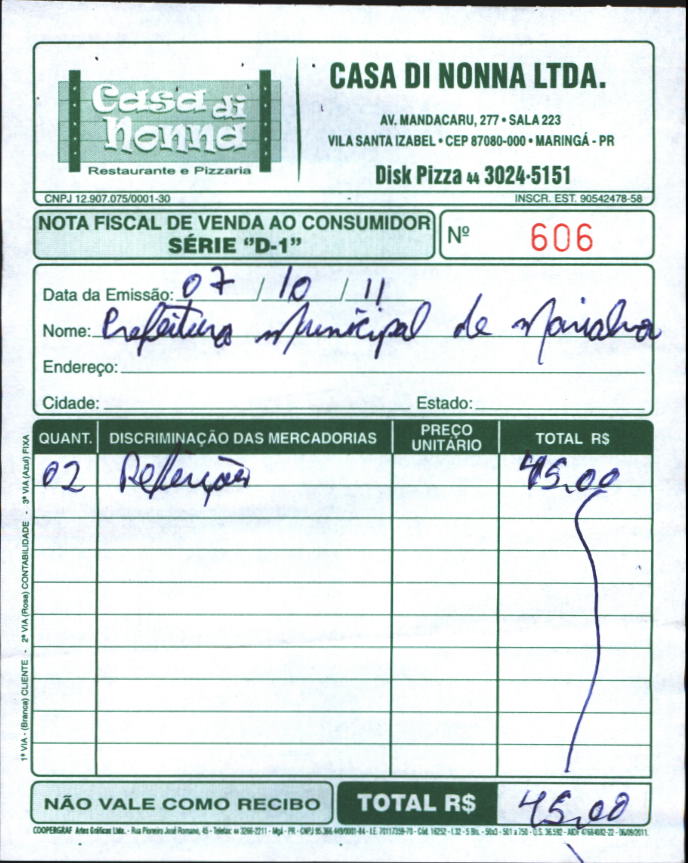 Casa di
Nonna
Restaurante e Pizzaria
CASA DI NONNA LTDA.
AV, MANDACARU, 277 • SALA 223
VILA SANTA IZABEL • CEP 87080-000 • MARINGÁ - PR
Disk Pizza 44 3024-5151
CNPJ 12.907.075/0001-30
INSCR. EST. 90542478-58
NOTA FISCAL DE VENDA AO CONSUMIDOR
SÉRIE "D-1"
Nº 606
Data da Emissão: 07 / 10 / 11
Nome: Prefeitura Municipal de Marialva
Endereço:
Cidade: Estado:
QUANT. DISCRIMINAÇÃO DAS MERCADORIAS PREÇO UNITÁRIO TOTAL R$
02 Refeição 45,00
1ª VIA - (Branca) CLIENTE - 2ª VIA (Rosa) CONTABILIDADE - 3ª VIA (Azul) FIXA
NÃO VALE COMO RECIBO
TOTAL R$ 45,00
COOPERGRAF Artes Gráficas Ltda. - Rua Pioneiro José Romano, 45 - Telefax: 44 3266-2211 - Mgá - PR - CNPJ 95.366.449/0001-84 - I.E. 70117359-70 - Cód. 16252 - I.32 - 5 Bls. - 50x3 - 501 a 750 - O.S. 36.592 - AIDF 06/09/2011.